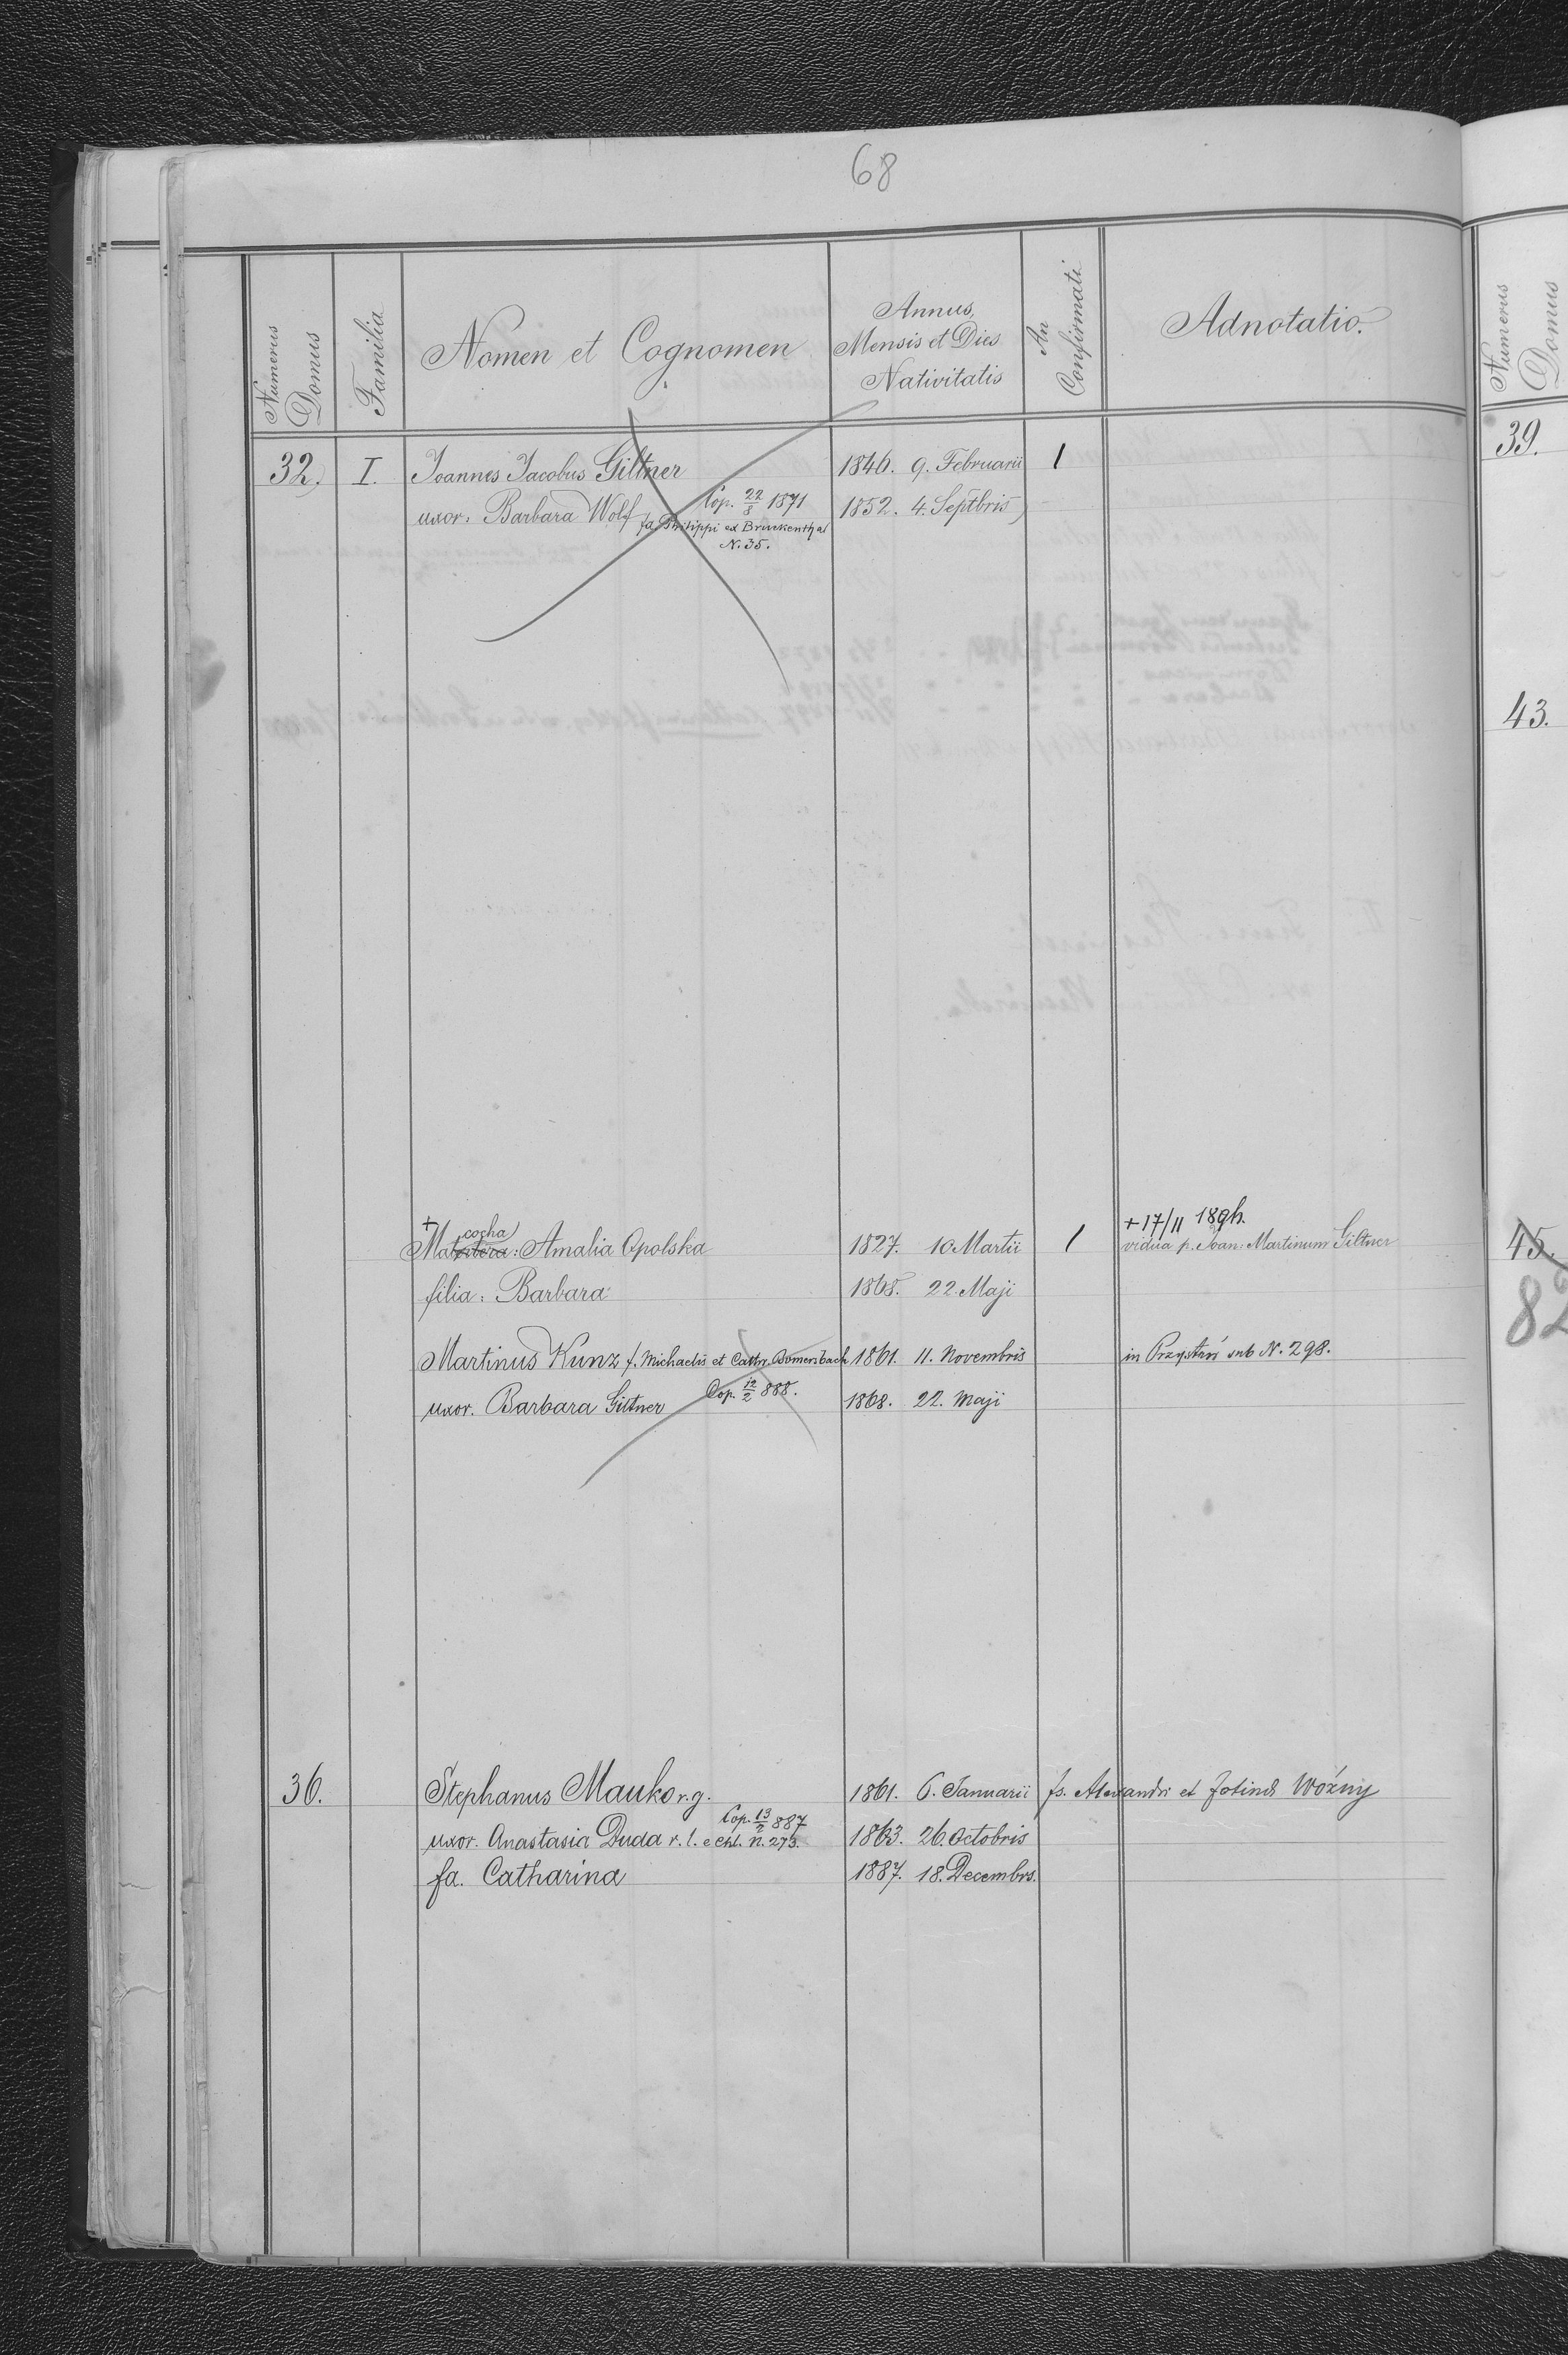 68
Numerus Domus
Familia
Nomen et Cognomen
Annus,
Mensis et Dies
Nativitatis
An Confirmati
Adnotatio.
32. I. Joannes Jacobus Giltner 1846. 9. Februarii 1
Cop. 22/8 1871
uxor: Barbara Wolf fa. Philippi ex Bruckenthal 1852. 4. Septbris
N. 35.
+ cocha +17/11 189h.
Matertera: Amalia Opolska 1827. 10. Martii 1 vidua p. Joan: Martinum Giltner
filia: Barbara 1868. 22. Maji
Martinus Kunz f. Michaelis et Cathr. Domersbach 1861. 11. Novembris in Przystań sub N. 298.
Cop. 12/2 888.
uxor. Barbara Giltner 1868. 22. Maji
36. Stephanus Mauko r. g. 1861. 6. Januarii fs. Alexandri et Fotinä Woźny
Cop. 13/2 887
uxor. Anastasia Duda r. l. e Chl. N. 273. 1863. 26. Octobris
fa. Catharina 1887. 18. Decembrs.
Numerus Domus
39.
43.
45.
82